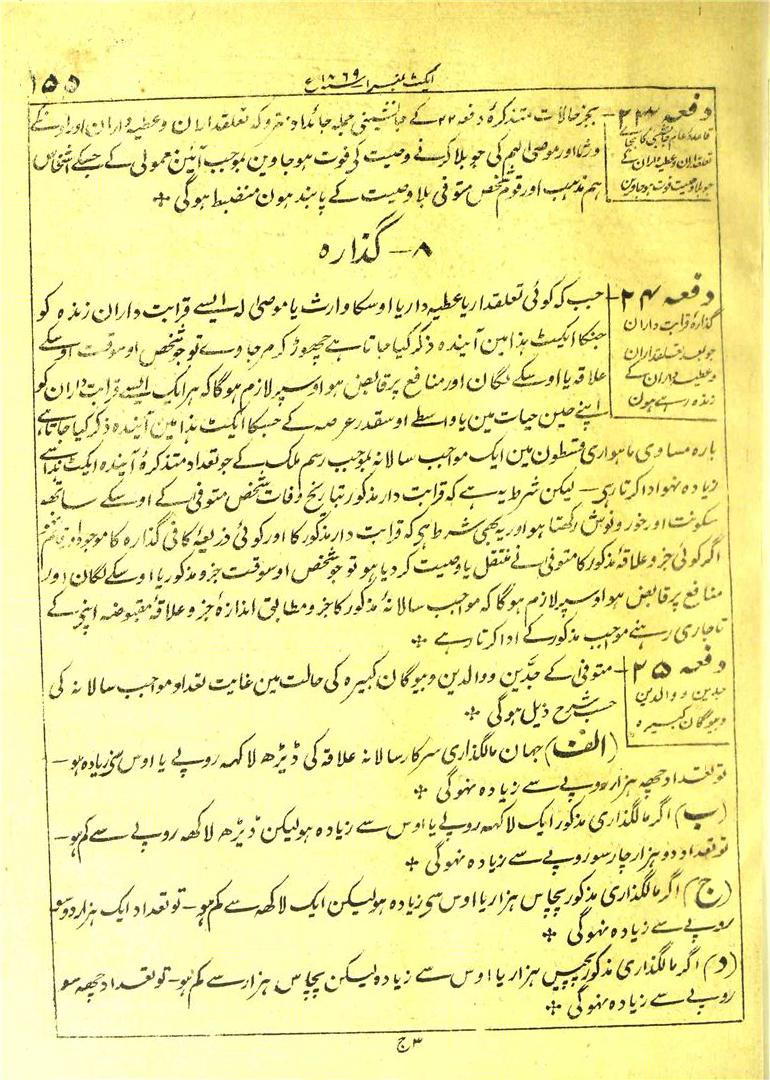 ایکٹ نمبر ا سنہ ۱۸۶۹ ع
۱۵۵
دفعہ ۲۳ - بجز حالات متذکرہ دفعہ ۲۲ کے جانشینی جملہ جائداد متروکہ تعلقداران و عطیہ داران اور اونکے
ورثا اور موصیٰ الہم کی جو بلا کرنے وصیت کی فوت ہو جاوین بموجب آئین معمولی کے جسکے اشخاص
ہم مذہب اور قوم شخص متوفی بلا وصیت کے پابند ہون منضبط ہوگی
تعلقداران و عطیہ داران کے
جو بلا وصیت فوت ہو جاوین
۸ - گذارہ
دفعہ ۲۴ - جب کہ کوئی تعلقدار یا عطیہ دار یا اوسکا وارث یا موصیٰ لہ ایسے قرابت داران زندہ کو
جنکا ایکٹ ہذا مین آیندہ ذکر کیا جاتا ہے چھوڑ کر مر جاوے تو جو شخص اوسوقت اوسکے
علاقہ یا اوسکے لگان اور منافع پر قابض ہو اوسپر لازم ہوگا کہ ہر ایک ایسے قرابت داران کو
اپنے حین حیات مین یا واسطے اوسقدر عرصہ کے جسکا ایکٹ ہذا مین آیندہ ذکر کیا جاتا ہے
گذارہ قرابت داران
جو بعد تعلقداران
و عطیہ داران کے
زندہ رہے ہون
بارہ مساوی ماہواری قسطون مین ایک مواجب سالانہ بموجب رسم ملک کے جو تعداد متذکرہ آیندہ ایکٹ ہذا سے
زیادہ نہو ادا کرتا رہی - لیکن شرط یہ ہے کہ قرابت دار مذکور بتاریخ وفات شخص متوفی کے اوسکے ساتھ
سکونت اور خور و نوش رکھتا ہو اور یہ بھی شرط ہی کہ قرابت دار مذکور کا اور کوئی ذریعہ کافی گذارہ کا موجود
اگر کوئی جزو علاقہ مذکور کا متوفی نے منتقل یا وصیت کر دیا ہو تو جو شخص اوسوقت جزو مذکور یا اوسکے لگان اور
منافع پر قابض ہو اوسپر لازم ہوگا کہ مواجب سالانہ مذکور کا جزو مطابق اندازہ جزو علاقہ مقبوضہ اپنے کے
تا جاری رہنے مواجب مذکور کے ادا کرتا رہے
دفعہ ۲۵ - متوفی کے جدّین و والدین و بیوگان کبیرہ کی حالت مین غایت تعداد مواجب سالانہ کی
حسب شرح ذیل ہوگی
جدین و والدین
و بیوگان کبیرہ
(الف) جہان مالگذاری سرکار سالانہ علاقہ کی ڈیڑھ لاکھہ روپے یا اوس سی زیادہ ہو -
تو تعداد چھہ ہزار روپے سے زیادہ نہوگی
(ب) اگر مالگذاری مذکور ایک لاکھہ روپے یا اوس سے زیادہ ہو لیکن ڈیڑھ لاکھہ روپے سے کم ہو -
تو تعداد دو ہزار چار سو روپے سے زیادہ نہوگی
(ج) اگر مالگذاری مذکور پچاس ہزار یا اوس سی زیادہ ہو لیکن ایک لاکھہ سے کم ہو - تو تعداد ایک ہزار دو سو
روپے سے زیادہ نہوگی
(د) اگر مالگذاری مذکور پچیس ہزار یا اوس سے زیادہ لیکن پچاس ہزار سے کم ہو - تو تعداد چھہ سو
روپے سے زیادہ نہوگی
۳ ج